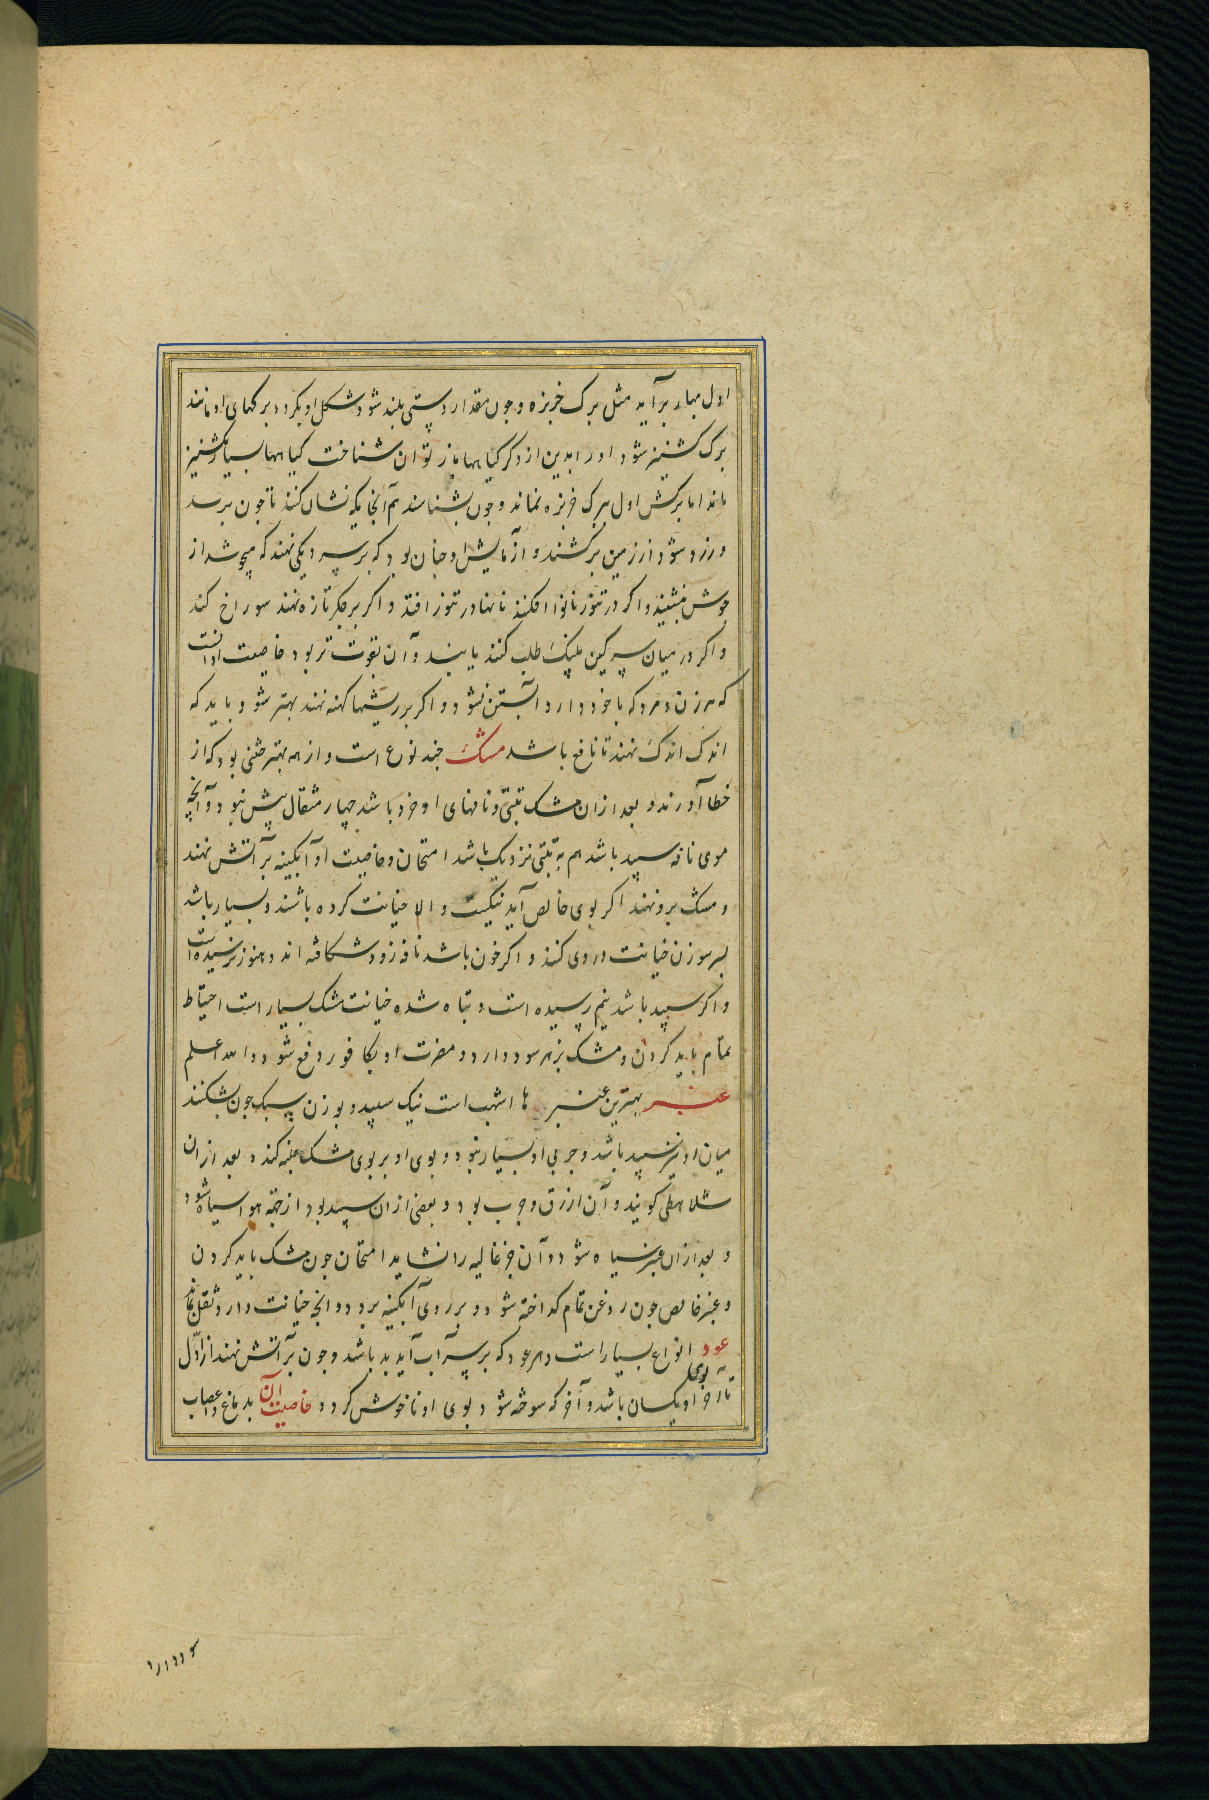 اول بهار برآید مثل برک خربزه و جون مقدار دستی بلند شود شکل او بکردد برکهای او مانند
برک کشنیز شود او را بدین از دکر کیاهها باز توان شناخت کیاهها بسیار بکشنیز
ماند اما برکش اول ببرک خربزه نماند و جون بشناسند هم آنجایکه نشان کنند تا جون برسد
و زرد شود از زمین برکشند و آزمایش او جنان بود که بر سر دیکی نهند که میجوشد از
جوش بنشیند و اکر در تنور نانوا افکنند نانها در تنور افتد و اکر بر جکر تازه نهند سوراخ کند
و اکر در میان سرکین پلنک طلب کنند یابند و آن بقوت تر بود خاصیت او آنست
که هر زن و مرد که با خود دارد آبستن نشود و اکر بر ریشها کهنه نهند بهتر شود و باید که
اندک اندک نهند تا نافع باشد مشک جند نوع است و از همه بهتر ختنی بود که از
خطا آورند و بعد از ان مشک تبتی و نافهای او خرد باشد جهار مثقال بیش نبود و آنجه
موی نافه سپید باشد هم به تبتی نزدیک باشد امتحان و خاصیت او آبکینه بر آتش نهند
و مشک برو نهند اکر بوی خالص آید نیکست و الا خیانت کرده باشند و بسیار باشد
بسر سوزن خیانت در وی کنند و اکر خون باشد نافه زود شکافته اند و هنوز نرسیده است
و اکر سپید باشد نیم رسیده است و تباه شده خیانت مشک بسیار است احتیاط
تمام باید کردن و مشک بزهر سود دارد و مضرت او بکافور دفع شود و الله اعلم
عنبر بهترین عنبرها اشهب است نیک سپید و بوزن سبک جون بشکنند
میان او نیز سپید باشد و جربی او بسیار نبود و بوی او بر بوی مشک غلبه کند و بعد از ان
شلاهطی کویند و آن ازرق و جرب بود و بعضی از ان سپید بود از جهة هوا سیاه شود
و بعد از ان عنبر سیاه شود و آن جز غالیه را نشاید امتحان جون مشک باید کردن
و عنبر خالص جون روغن تمام کداخته شود و بر روی آبکینه برود و انجه خیانت دارد ثقل بماند
عود انواع بسیار است و هر عود که بر سر آب آید بد باشد و جون بر آتش نهند از اول
تا آخر بوی او یکسان باشد و آخر که سوخته شود بوی او ناخوش کردد خاصیت آن بدماغ و اعصاب